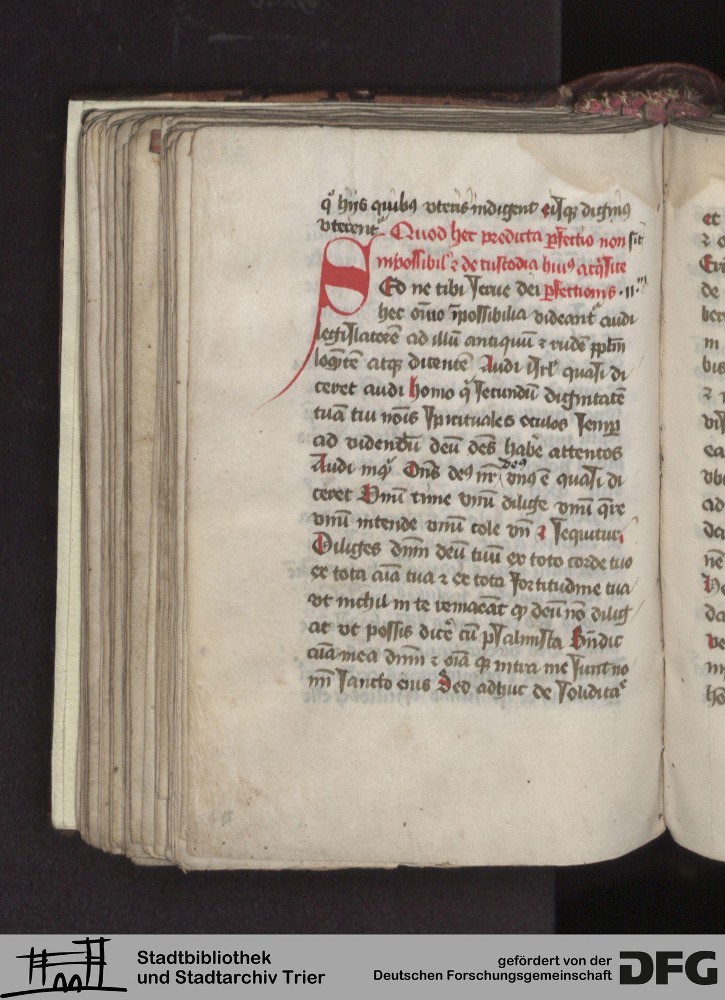 q' hijs quibꝯ vteris indigent eisqꝫ dignius
vterent᷑ Quod hec predicta ꝑfectio non sit
impossibil' ⁊ de custodia huiꝯ acq̇site
Sed ne tibi serue dei ꝑfectionis ·ii·
hec oīno īpossibilia videant᷑ audi
legislatorē ad illū antiquū ⁊ rudē pplm
loqntē atqꝫ dicentē Audi isrl' quasi di
ceret audi homo q' secundū dignitatē
tuā tui nōis spirituales oculos semꝑ
ad videndū deū dēs habe attentos
Audi inq̇ Dns deꝯ nr̄ deꝯ vnꝯ ē quasi di
ceret Vnū time vnū dilige vnū qre
vnū intende vnū cole vn̄ ⁊ sequitur
Diliges dnm deū tuū ex toto corde tuo
ex tota aīa tua ⁊ ex tota fortitudine tua
vt nichil in te remaneāt qꝫ deū nō dilig
at vt possis dicē cū psalmista Bn̄dic
aīa mea dnm ⁊ oīa que intra me sunt no
mī sancto eius Sed adhuc de solidita
et
⁊
de
m
bis
⁊
ea
ad
nē
Stadtbibliothek
und Stadtarchiv Trier
gefördert von der
Deutschen Forschungsgemeinschaft
DFG